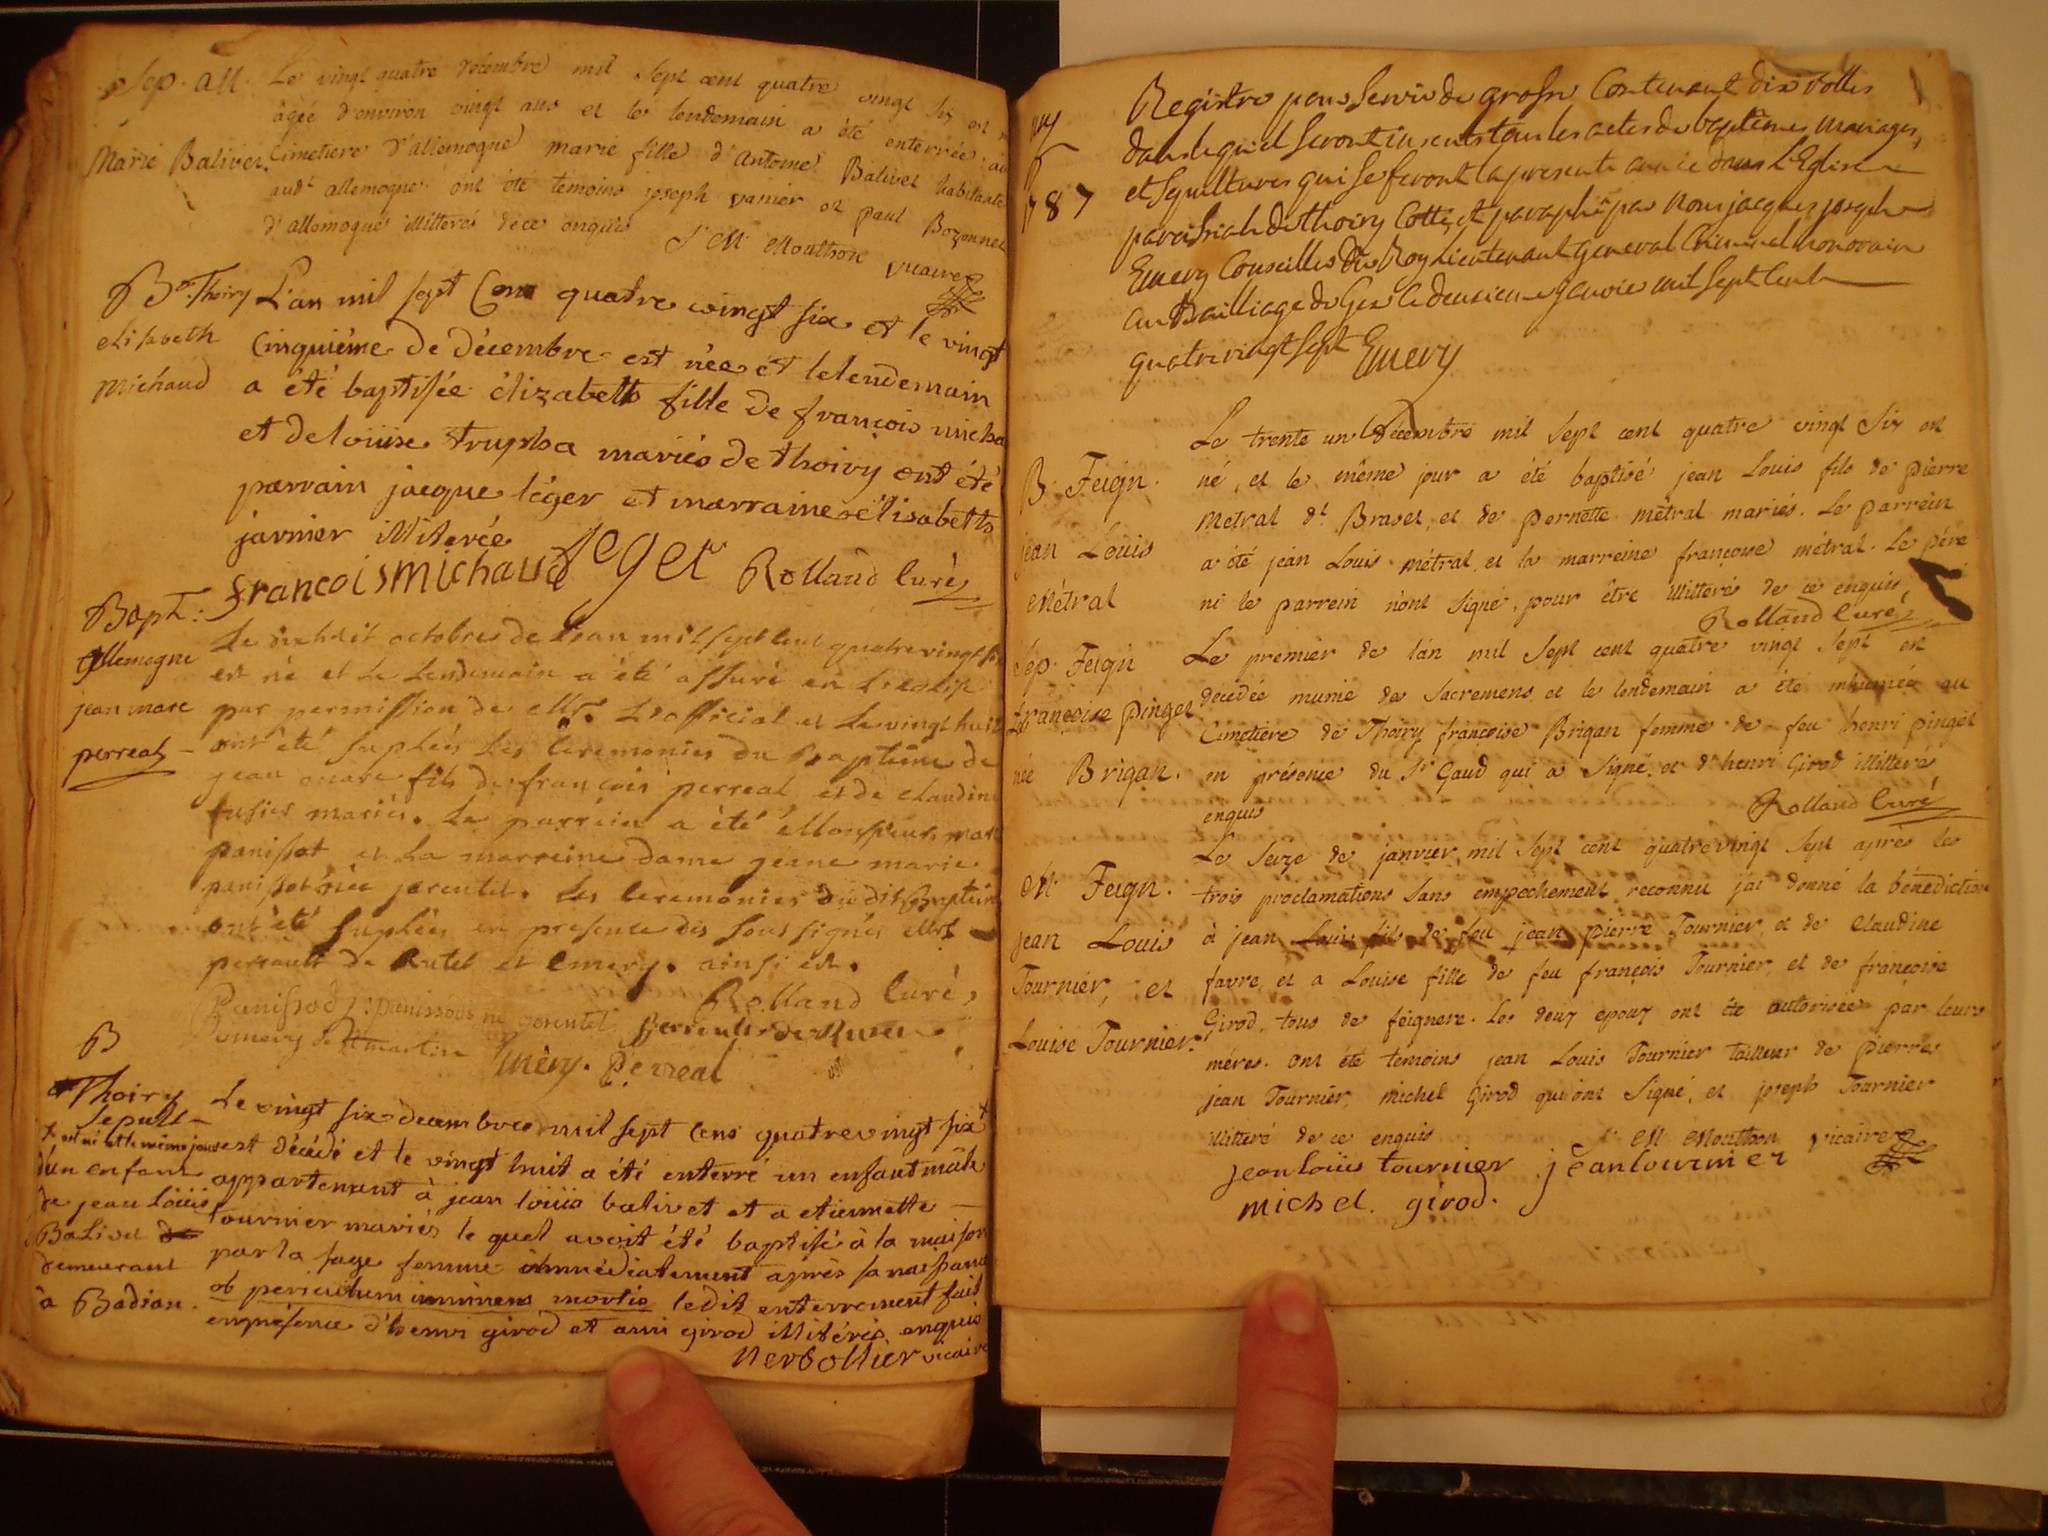 Sep. All.
Marie Balivet.
Le vingt quatre décembre mil sept cent quatre vingt six est
âgée d'environ vingt ans et le lendemain a été enterrée au
Cimetiere d'allemogne marie fille d'Antoine Balivet habitante
audt allemogne. ont été temoins joseph vanier et paul Bozonnet
d'allemogne illitterés de ce enquis
J. M. Mouthon vicaire
B. Thoiry
elisabeth
michaud
L'an mil sept Cent quatre vingt six et le vingt
Cinquiéme de décembre est née et le lendemain
a été baptisée élizabeth fille de françois micha
et de loüise trupha mariés de thoiry ont été
parrain jacque léger et marraine élisabeth
javnier illiterée
francois michaud leger Rolland Curé
Bapt:
allemogne
jean marc
perreal
Le dixhuit octobre de l'an mil sept cent quatre vingt six
est né et le lendemain a été assuré en l'eglise
par permission de Mgr. L'official et le vingt huit
ont été suplées les ceremonies du Baptême de
jean marc fils de françois perreal et de claudine
fusier mariés. Le parrein a été Monsieur marc
panissot et la marreine dame jeane marie
panissot née jerentet. Les ceremonies dudit Baptême
ont été suplées en presence des sous signés Mrs
perrault de Rutet et Emery. ainsi est.
Panissod panissod né gerentet Rolland Curé
Emery. Perreal
B
Thoiry
Sepult
est né et le même jour
d'un enfant
de jean Loüis
Balivet
demeurant
à Badian.
Le vingt six decembre mil sept cens quatre vingt six
est décédé et le vingt huit a été enterré un enfant mâle
appartenant à jean loüis balivet et a etiennette
Tournier mariés le quel avoit été baptisé à la maison
par la sage femme immédiatement après sa naissance
ob periculum imminens mortis ledit enterrement fait
en présence d'henri girod et ami girod illitérés enquis
Nerbollier vicaire
1787
Registre pour servir de grosse Contenant dix rolles
dans lequel seront inscrits tous les actes de baptêmes, mariages,
et sepultures qui se feront la presente année dans l'Eglise
paroissiale de thoiry Cotté et paraphé par nous jacques joseph
Emery Conseiller du Roy Lieutenant general Criminel honoraire
au Bailliage de Gex le deuxieme janvier mil sept cent
quatre vingt sept Emery
B. Feign.
jean Louis
Métral
Le trente un Décembre mil sept cent quatre vingt six est
né, et le même jour a été baptisé jean Louis fils de pierre
Métral dt Braset, et de pernette métral mariés. Le parrein
a été jean Louis métral, et la marreine françoise métral. Le pére
ni le parrein n'ont signé, pour être illitteré de ce enquis
Rolland Curé
Sép. Feign
françoise pinget
née Brigan.
Le premier de l'an mil sept cent quatre vingt sept est
décédée munie de Sacremens et le lendemain a été inhumée au
Cimetiere de Thoiry françoise Brigan femme de feu henri pinget
en présence du Sr Gaud qui a signé, et d'henri Girod illitteré
enquis
Rolland Curé
M. Feign.
jean Louis
Tournier, et
Louise Tournier
Le seize de janvier mil sept cent quatre vingt sept aprés les
trois proclamations sans empechement reconnu j'ai donné la bénédiction
à jean Louis fils de feu jean pierre Tournier, et de Claudine
favre, et a Louise fille de feu françois Tournier, et de françoise
Girod, tous de feignere. Les deux epoux ont été autorisée par leurs
méres. ont été témoins jean Louis Tournier tailleur de pierres
jean Tournier, michel Girod qui ont signé, et joseph Tournier
illitteré de ce enquis J. M. Mouthon vicaire
jean loüis tournier jean tournier
michel. girod.